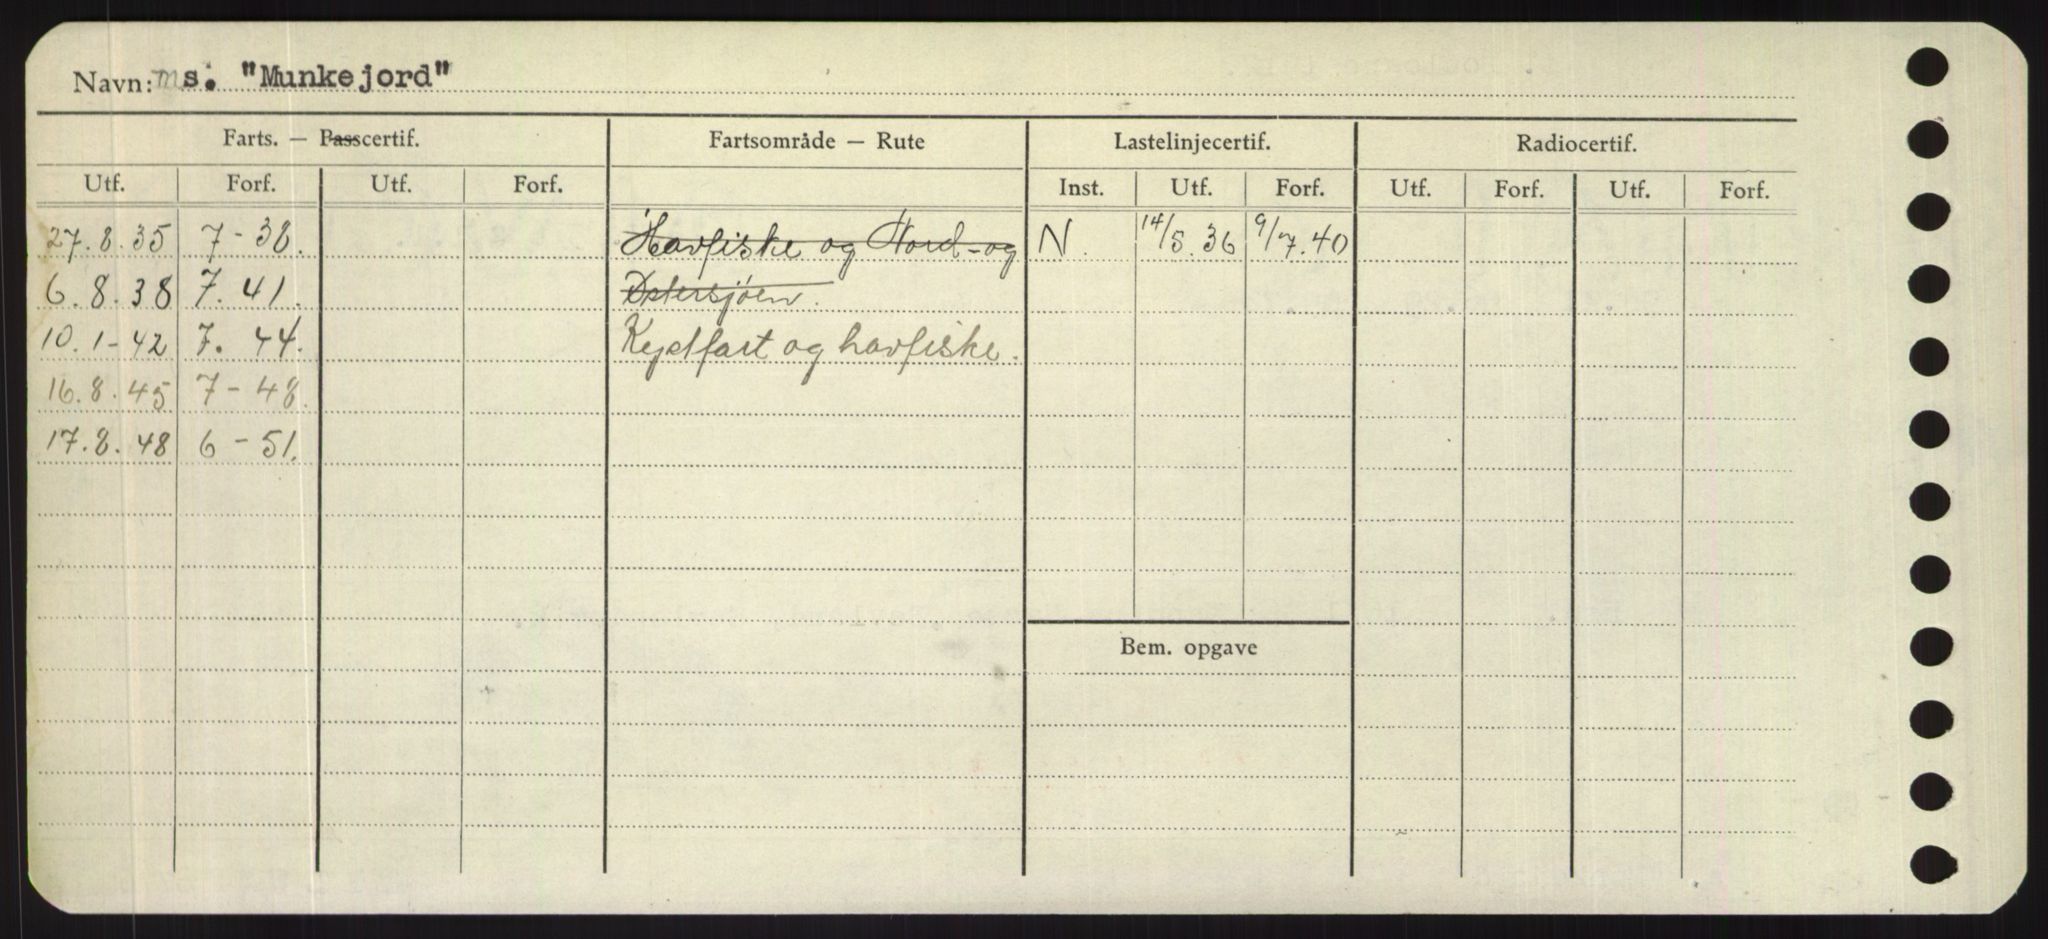 Navn: ms. "Munkejord"
Farts. — Passcertif. Fartsområde — Rute Lastelinjecertif. Radiocertif.
Utf. Forf. Utf. Forf. Inst. Utf. Forf. Utf. Forf. Utf. Forf.
27.8.35 7-38. Havfiske og Nord- og N. 14/5.36 9/7.40
6.8.38 7.41. Østersjøen.
10.1-42 7.44. Kystfart og havfiske.
16.8.45 7-48.
17.8.48 6-51.
Bem. opgave